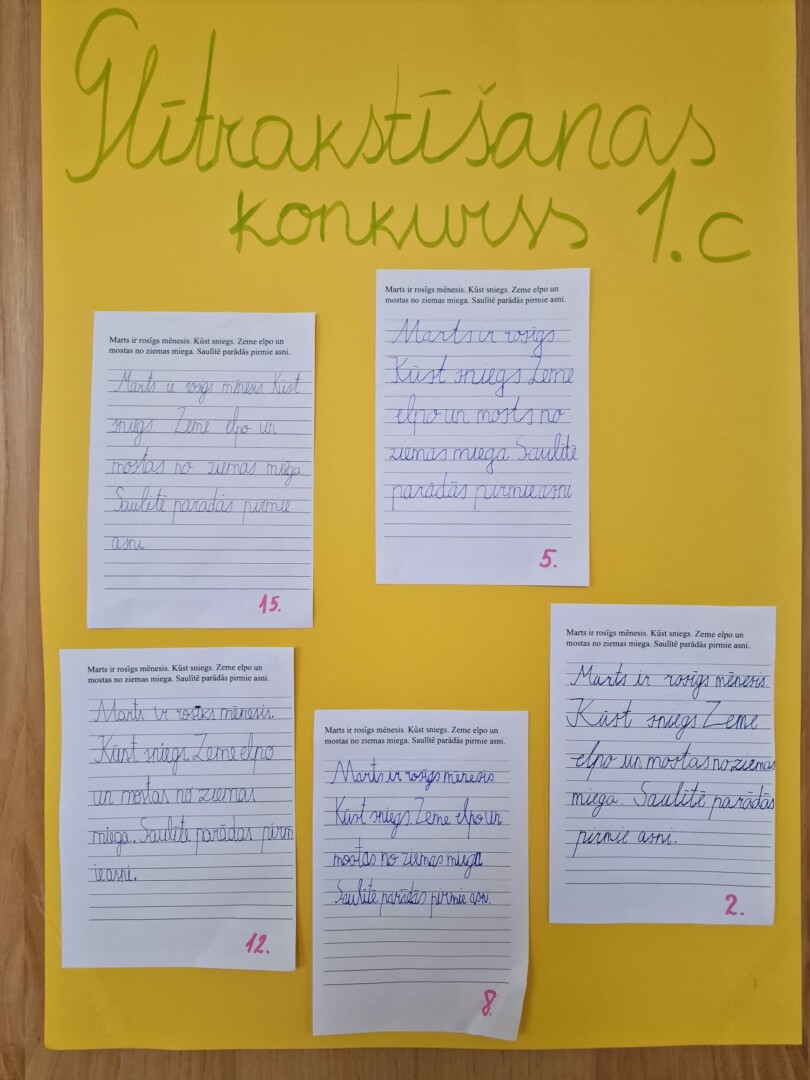 Glītrakstīšanas
konkurss 1.c
Marts ir rosīgs mēnesis. Kūst sniegs. Zeme elpo un
mostas no ziemas miega. Saulītē parādās pirmie asni.
Marts ir rosīgs mēnesis Kūst
sniegs. Zeme elpo un
mostas no ziemas miega
Saulītē paradās pirmie
asni
15.
Marts ir rosīgs mēnesis. Kūst sniegs. Zeme elpo un
mostas no ziemas miega. Saulītē parādās pirmie asni.
Marts ir rosīgs
Kūst sniegs Zeme
elpo un mosts no
ziemas miega Saulītē
parādās pirmie asni
5.
Marts ir rosīgs mēnesis. Kūst sniegs. Zeme elpo un
mostas no ziemas miega. Saulītē parādās pirmie asni.
Marts ir rosīks mēnesis.
Kūst sniegs. Zeme elpo
un mostas no ziemas
miega. Saulīte parādas pirm
ieasni.
12.
Marts ir rosīgs mēnesis. Kūst sniegs. Zeme elpo un
mostas no ziemas miega. Saulītē parādās pirmie asni.
Marts ir rosīgs mēnesis
Kūst sniegs. Zeme elpo un
mostas no ziemas miega
Saulītē parādās pirmie asn.
8.
Marts ir rosīgs mēnesis. Kūst sniegs. Zeme elpo un
mostas no ziemas miega. Saulītē parādās pirmie asni.
Marts ir rosīgs mēnesis.
Kūst sniegs Zeme
elpo un mostas no ziemas
miega. Saulītē parādās
pirmie asni.
2.